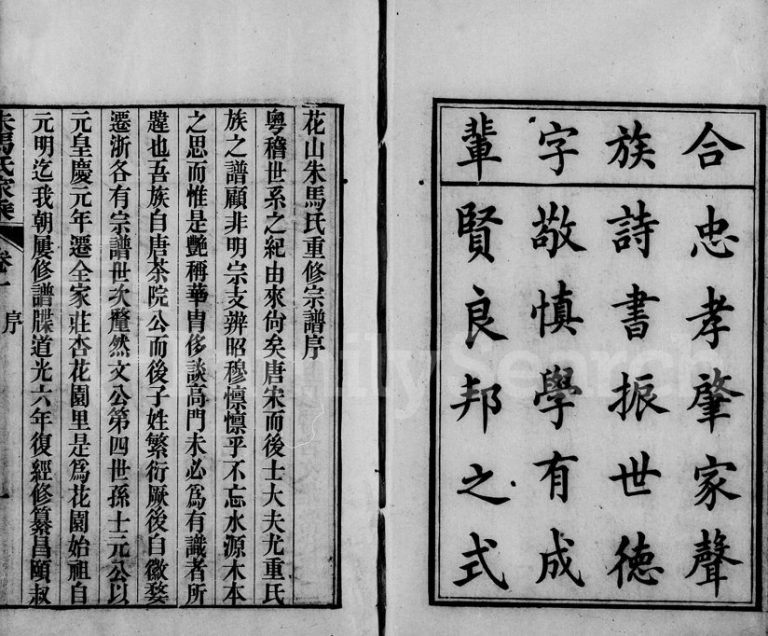 合族字輩
忠孝肇家聲
詩書振世德
敬慎學有成
賢良邦之式
花山朱馬氏重修宗譜序
粵稽世系之紀由來尙矣唐宋而後士大夫尤重氏
族之譜顧非明宗支辨昭穆懍懍乎不忘水源木本
之思而惟是艷稱華胄侈談高門未必爲有識者所
韙也吾族自唐茶院公而後子姓繁衍厥後自徽婺
遷浙各有宗譜世次釐然文公第四世孫士元公以
元皇慶元年遷全家莊杏花園里是爲花園始祖自
元明迄我朝屢修譜牒道光六年復經修纂昌頤叔
朱馬氏家乘 卷一 序 一
FamilySearch